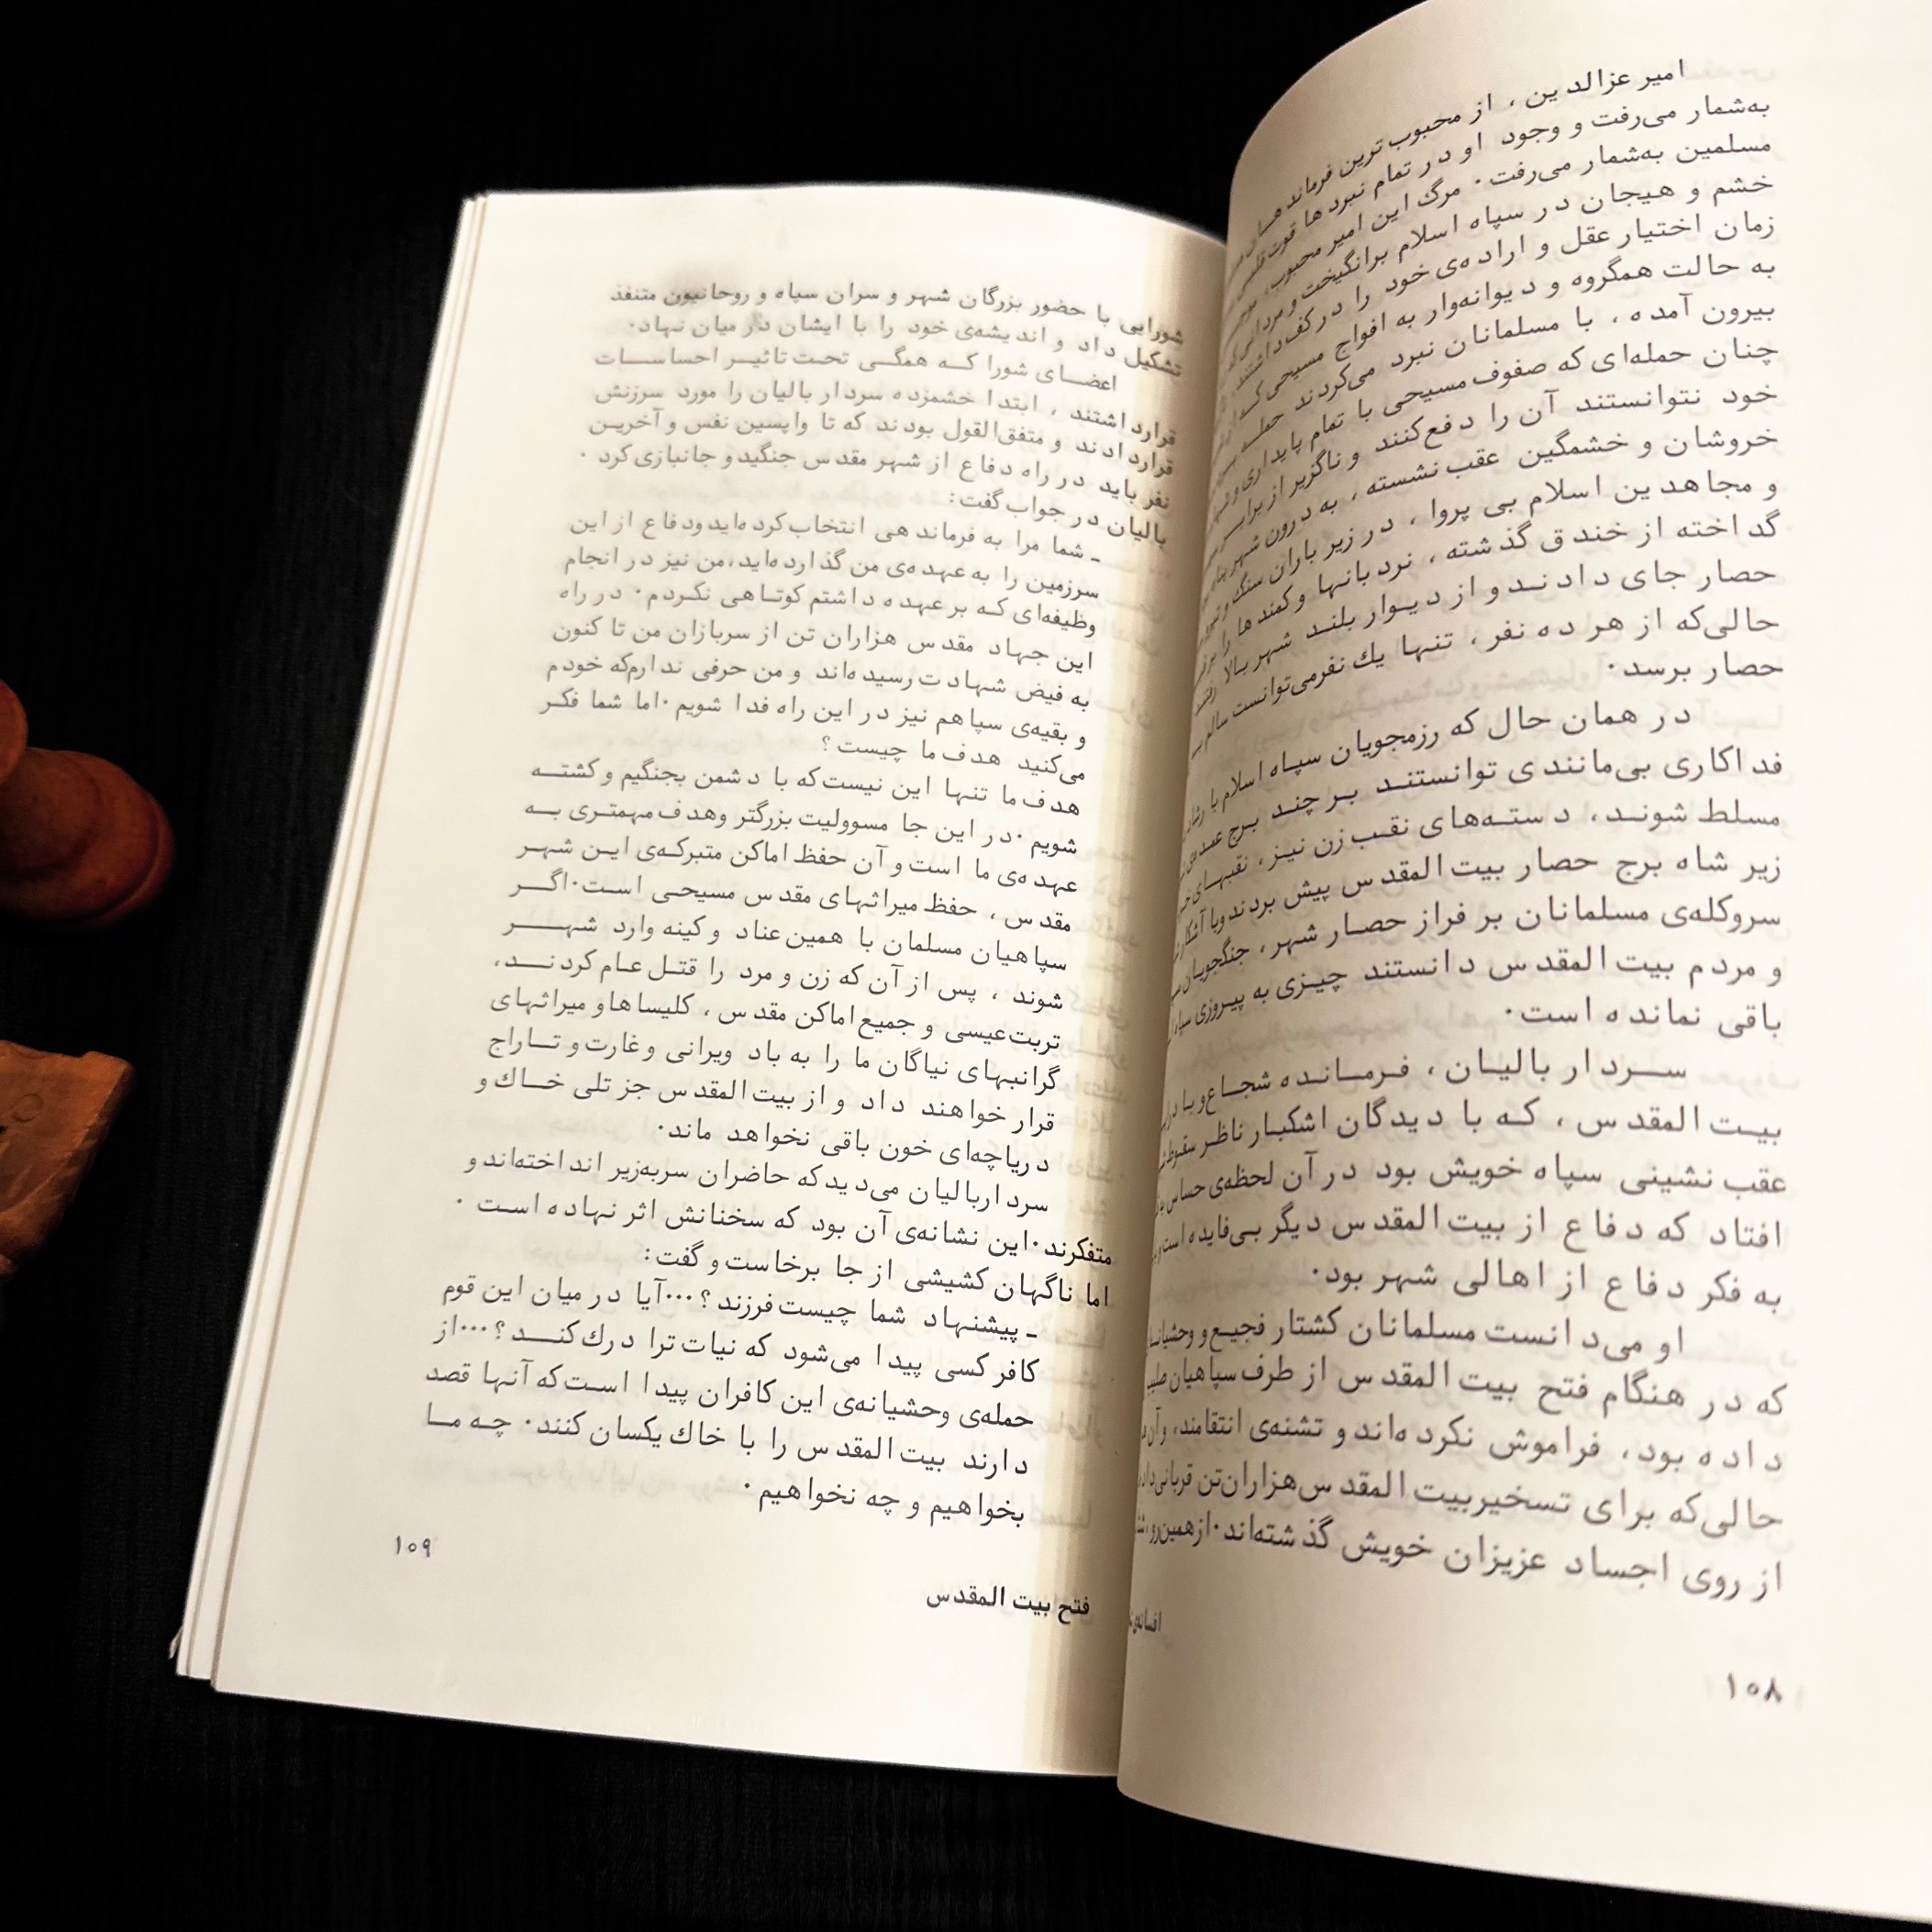 امیر عزالدین، از محبوب ترین فرماندهان
به‌شمار می‌رفت و وجود او در تمام نبردها قوت قلب
مسلمین به‌شمار می‌رفت. مرگ این امیر محبوب،
خشم و هیجان در سپاه اسلام برانگیخت و مردانی که
زمان اختیار عقل و اراده‌ی خود را در کف داشتند،
به حالت همگروه و دیوانه‌وار به افواج مسیحی که از
بیرون آمده، با مسلمانان نبرد می‌کردند حمله
چنان حمله‌ای که صفوف مسیحی با تمام پایداری و
خود نتوانستند آن را دفع کنند و ناگزیر از برابر
خروشان و خشمگین عقب نشسته، به درون شهر پناه
و مجاهدین اسلام بی پروا، در زیر باران سنگ و تیر و
گداخته از خندق گذشته، نردبانها و کمندها را بر
حصار جای دادند و از دیوار بلند شهر بالا رفتند
حالی‌که از هر ده نفر، تنها یك نفر می‌توانست سالم به
حصار برسد.
در همان حال که رزمجویان سپاه اسلام با
فداکاری بی‌مانندی توانستند بر چند برج عمده‌ی
مسلط شوند، دسته‌های نقب زن نیز، نقبهای
زیر شاه برج حصار بیت المقدس پیش بردند و با آشکار
سروکله‌ی مسلمانان بر فراز حصار شهر، جنگجویان
و مردم بیت المقدس دانستند چیزی به پیروزی
باقی نمانده است.
سردار بالیان، فرمانده شجاع و با
بیت المقدس، که با دیدگان اشکبار ناظر سقوط
عقب نشینی سپاه خویش بود در آن لحظه‌ی حساس
افتاد که دفاع از بیت المقدس دیگر بی‌فایده است و
به فکر دفاع از اهالی شهر بود.
او می‌دانست مسلمانان کشتار فجیع و وحشیانه
که در هنگام فتح بیت المقدس از طرف سپاهیان صلیب
داده بود، فراموش نکرده‌اند و تشنه‌ی انتقامند، و آن
حالی‌که برای تسخیر بیت المقدس هزاران تن قربانی داده
از روی اجساد عزیزان خویش گذشته‌اند. از همین‌رو،
۱۰۸
شورایی با حضور بزرگان شهر و سران سپاه و روحانیون متنفذ
تشکیل داد و اندیشه‌ی خود را با ایشان در میان نهاد.
اعضای شورا که همگی تحت تاثیر احساسات
قرارداشتند، ابتدا خشمزده سردار بالیان را مورد سرزنش
قراردادند و متفق‌القول بودند که تا واپسین نفس و آخرین
نفر باید در راه دفاع از شهر مقدس جنگید و جانبازی کرد.
بالیان در جواب گفت:
ـ شما مرا به فرماندهی انتخاب کرده‌اید و دفاع از این
سرزمین را به عهده‌ی من گذارده‌اید، من نیز در انجام
وظیفه‌ای که بر عهده داشتم کوتاهی نکردم. در راه
این جهاد مقدس هزاران تن از سربازان من تا کنون
به فیض شهادت رسیده‌اند و من حرفی ندارم که خودم
و بقیه‌ی سپاهم نیز در این راه فدا شویم. اما شما فکر
می‌کنید هدف ما چیست؟
هدف ما تنها این نیست که با دشمن بجنگیم و کشته
شویم. در این جا مسوولیت بزرگتر و هدف مهمتری به
عهده‌ی ما است و آن حفظ اماکن متبرکه‌ی این شهر
مقدس، حفظ میراثهای مقدس مسیحی است. اگر
سپاهیان مسلمان با همین عناد و کینه وارد شهر
شوند، پس از آن که زن و مرد را قتل عام کردند،
تربت عیسی و جمیع اماکن مقدس، کلیساها و میراثهای
گرانبهای نیاگان ما را به باد ویرانی و غارت و تاراج
قرار خواهند داد و از بیت المقدس جز تلی خاك و
دریاچه‌ای خون باقی نخواهد ماند.
سردار بالیان می‌دید که حاضران سربه‌زیر انداخته‌اند و
متفکرند. این نشانه‌ی آن بود که سخنانش اثر نهاده است.
اما ناگهان کشیشی از جا برخاست و گفت:
ـ پیشنهاد شما چیست فرزند؟... آیا در میان این قوم
کافر کسی پیدا می‌شود که نیات ترا درك کند؟... از
حمله‌ی وحشیانه‌ی این کافران پیدا است که آنها قصد
دارند بیت المقدس را با خاك یکسان کنند. چه ما
بخواهیم و چه نخواهیم.
۱۰۹
فتح بیت المقدس